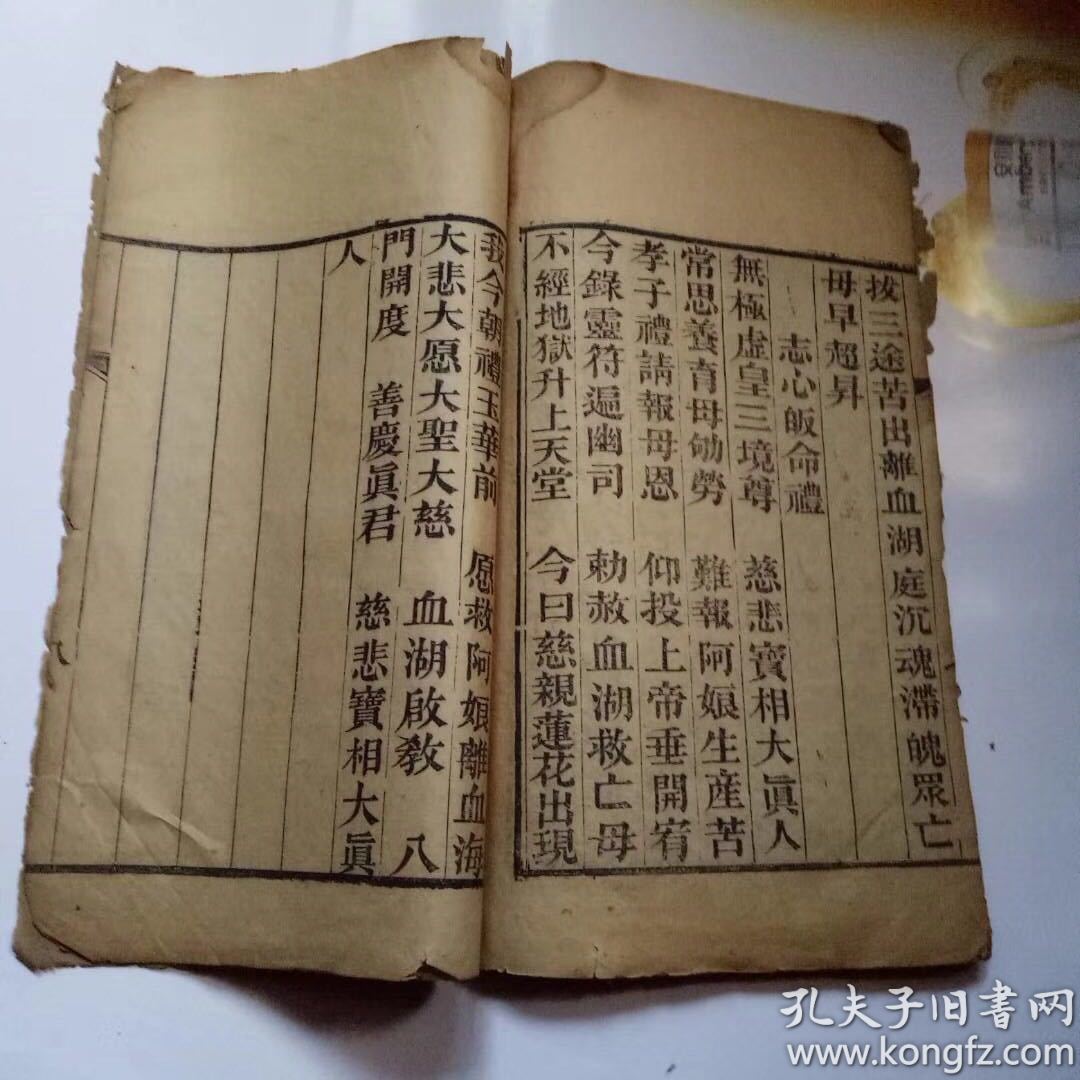 拔三途苦出離血湖庭沉魂滯魄眾亡
母早超昇
志心皈命禮
無極虛皇三境尊　慈悲寶相大眞人
常思養育母劬勞　難報阿娘生産苦
孝子禮請報母恩　仰投上帝垂開宥
今錄靈符遍幽司　勅赦血湖救亡母
不經地獄升上天堂　今日慈親蓮花出現
我今朝禮玉華前　愿救阿娘離血海
大悲大愿大聖大慈　血湖啟教　八
門開度　善慶眞君　慈悲寶相大眞
人
八
孔夫子旧书网
www.kongfz.com